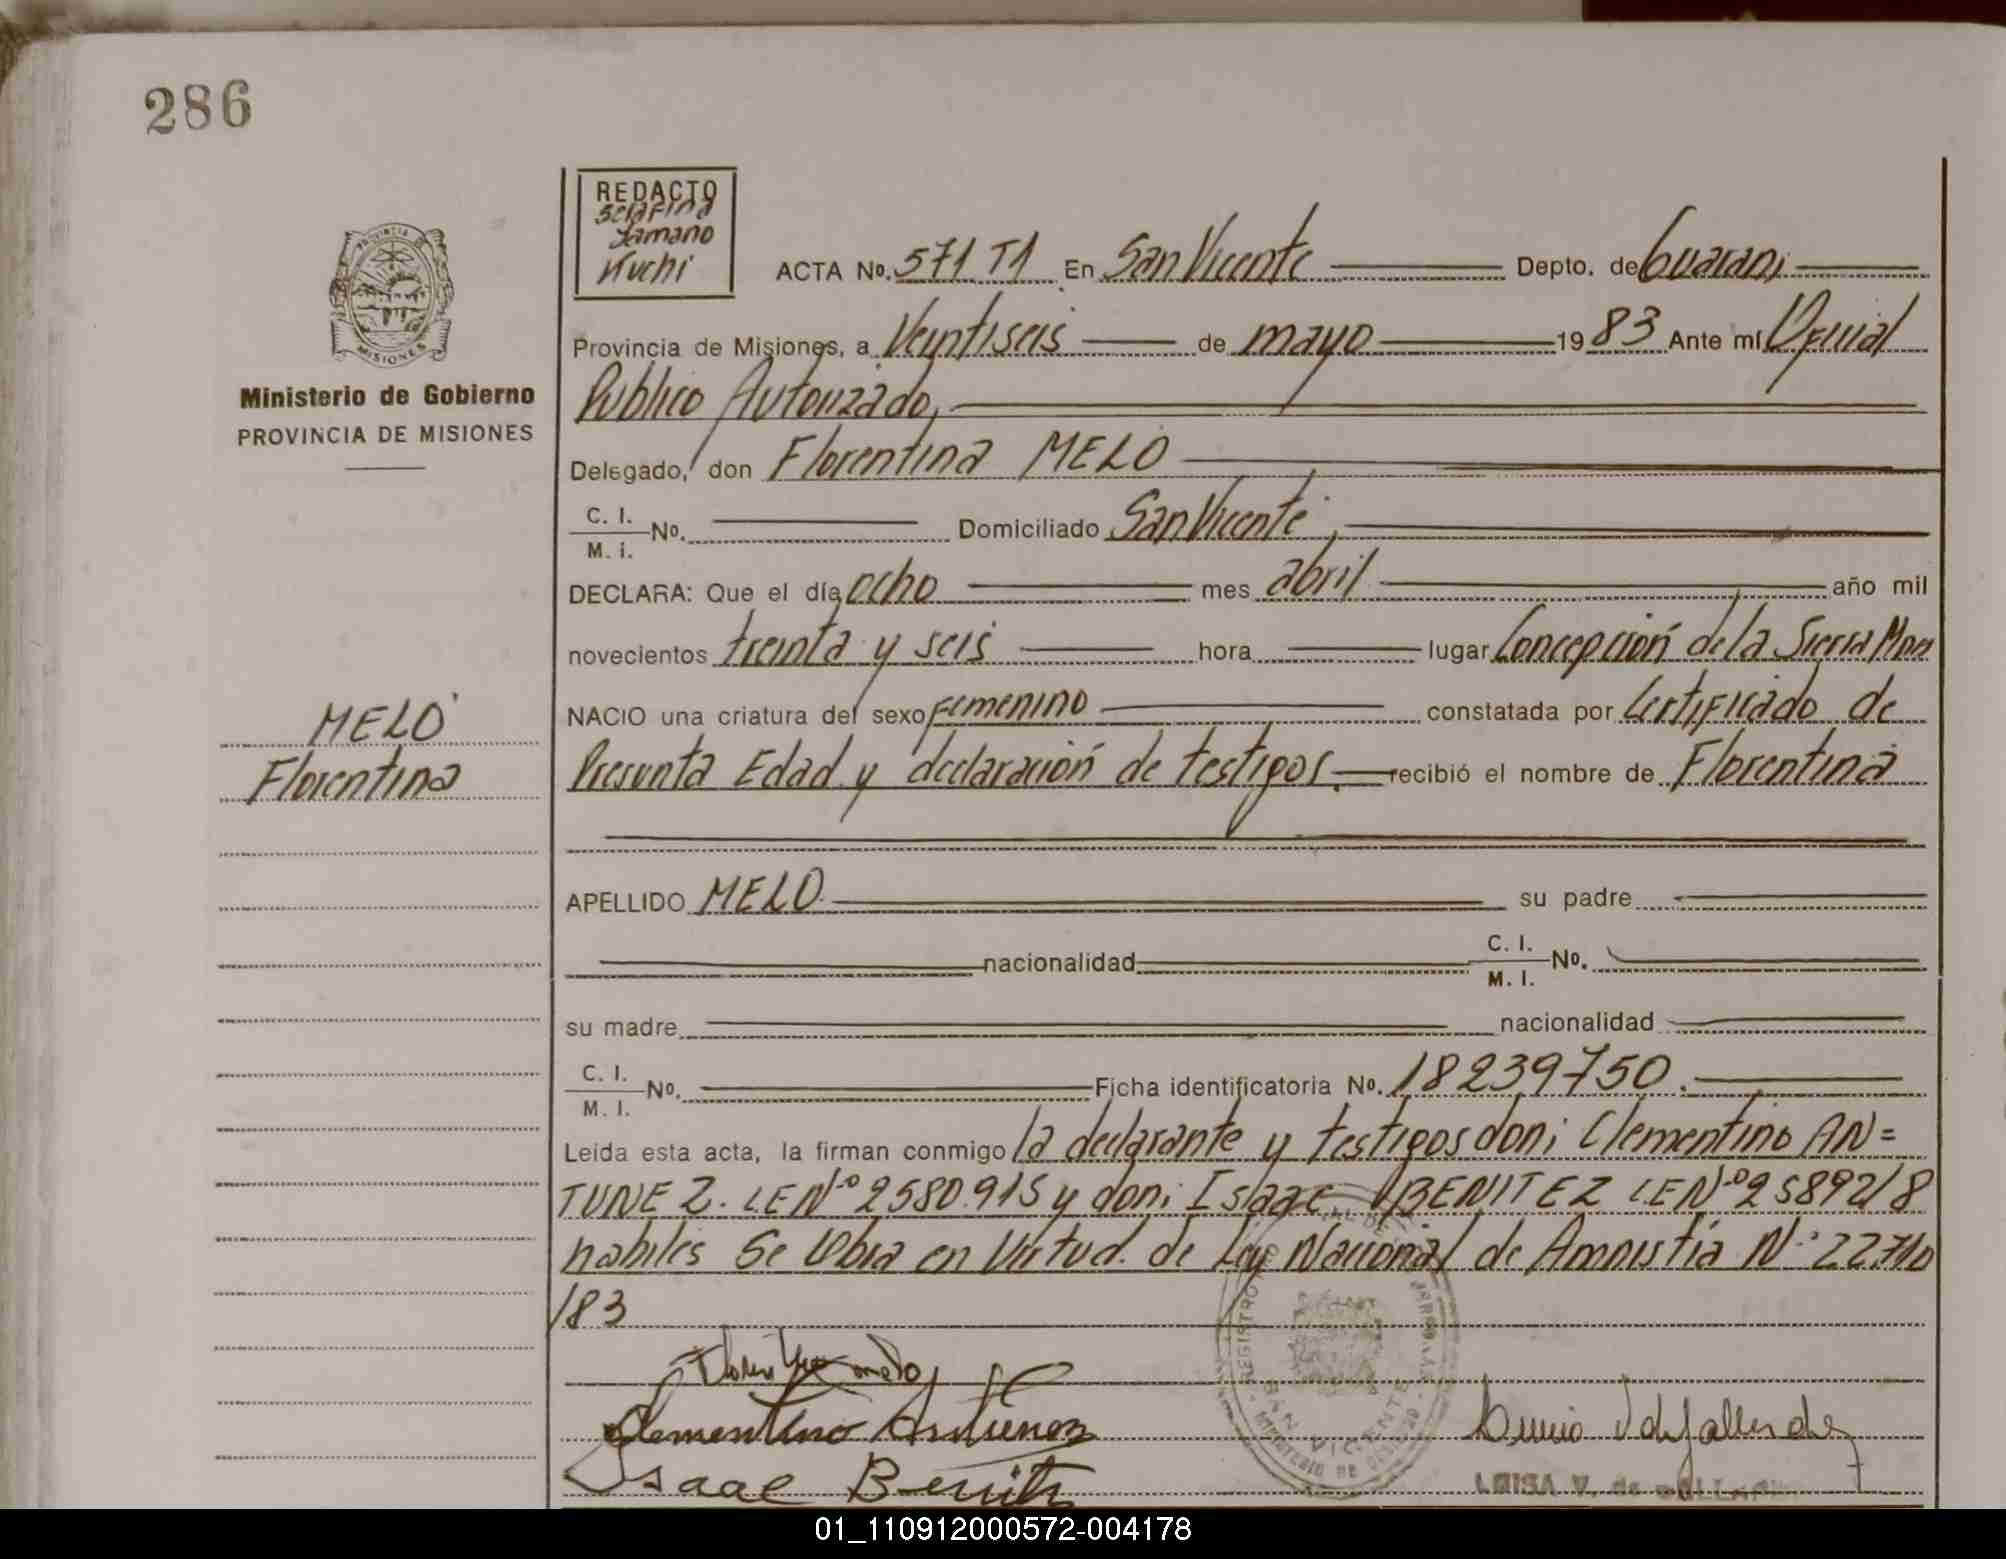 286
REDACTO
Serafina
Zamano
Kuchi
PROVINCIA
MISIONES
Ministerio de Gobierno
PROVINCIA DE MISIONES
ACTA No. 571 T1 En San Vicente Depto. de Guarani
Provincia de Misiones, a Veintiseis de mayo 1983 Ante mí Oficial
Publico Autorizado,
Delegado, don Florentina MELO
C. I.
M. I. No. Domiciliado San Vicente,
DECLARA: Que el día ocho mes abril año mil
novecientos treinta y seis hora lugar Concepción de la Sierra Mnes
NACIO una criatura del sexo femenino constatada por Certificado de
Presunta Edad y declaración de testigos. recibió el nombre de Florentina
MELO
Florentina
APELLIDO MELO su padre
nacionalidad C. I.
M. I. No.
su madre nacionalidad
C. I.
M. I. No. Ficha identificatoria No. 18239750.
Leída esta acta, la firman conmigo la declarante y testigos don; Clementino AN=
TUNEZ. LE Nº 2580.915 y don; Isaac BENITEZ LE Nº 2589218
habiles Se Obra en Virtud. de Ley Nacional de Amnistia Nº 22.710
/83
Clementino Antunez
Isaac Benitez
SAN VICENTE
LUISA V. de
01_110912000572-004178